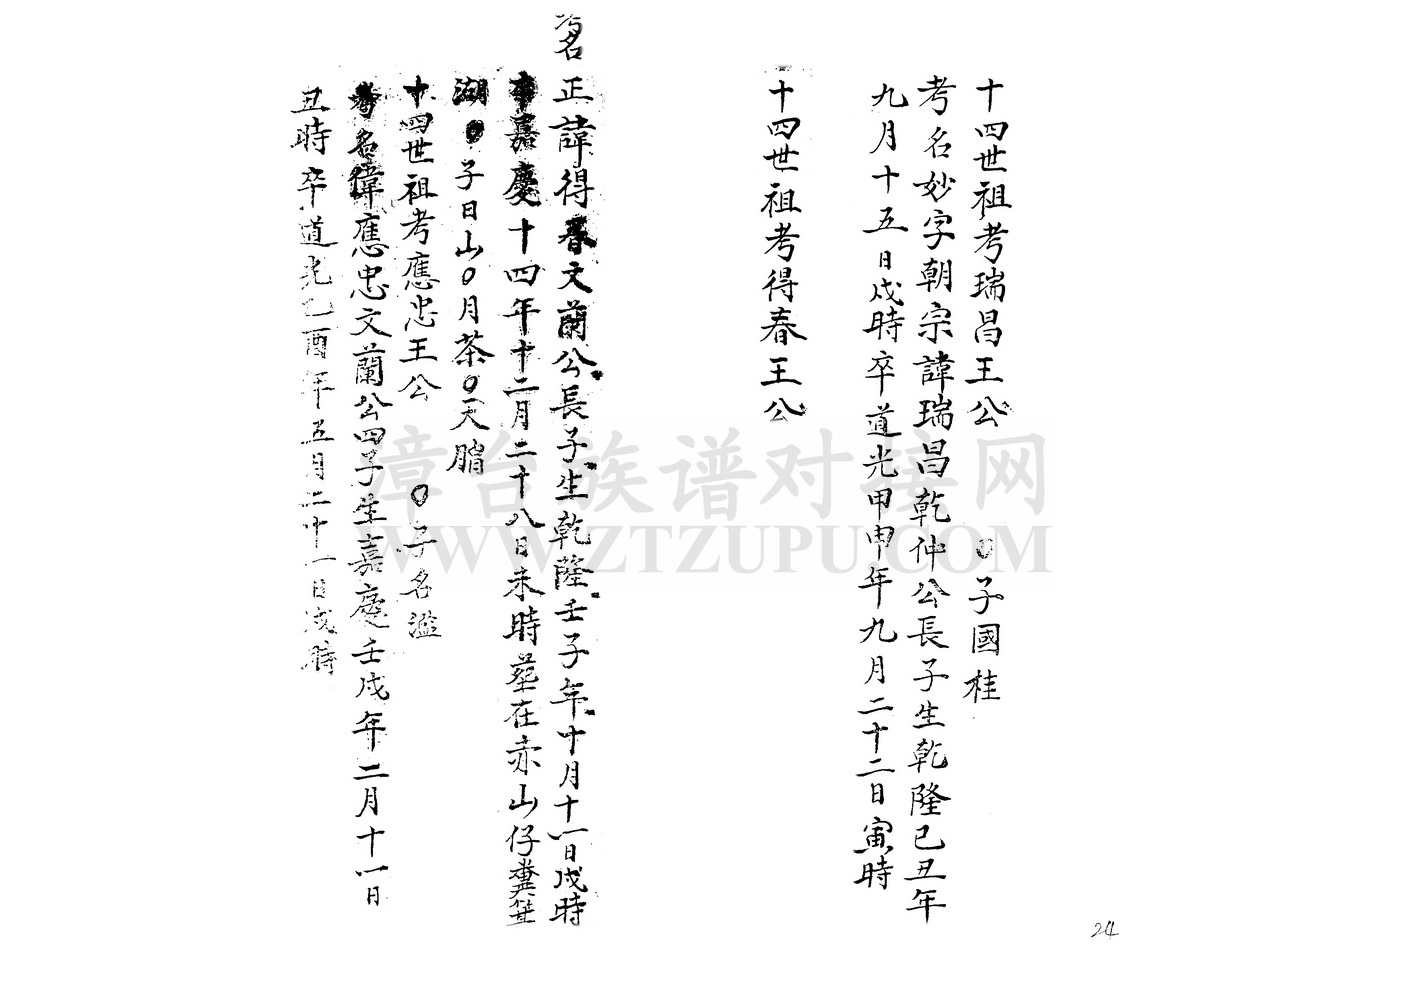 十四世祖考瑞昌王公 〇子國桂
考名妙字朝宗諱瑞昌乾仲公長子生乾隆已丑年
九月十五日戌時卒道光甲申年九月二十二日寅時
十四世祖考得春王公
名正諱得春文蘭公長子生乾隆壬子年十月十一日戌時
嘉慶十四年十二月二十八日未時葬在赤山仔糞箕
湖〇子日山〇月茶〇天腊
十四世祖考應忠王公 〇子名濫
考名偉應忠文蘭公四子生嘉慶壬戌年二月十一日
丑時卒道光乙酉年五月二十一日戌時
章台族谱对接网
WWW.ZTZUPU.COM
24